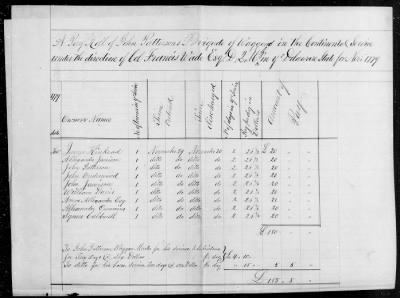 A Pay Roll of John Patterson's Brigade of Waggons in the Continental Service
under the direction of Col. Francis Wade Esqr. D.Q.M. in ye Delaware State for Novr 1779
1779
Owners Names
No. of Teams in Service
Time Entered
Time discharged
No. of days in Service
Pay per day in Dollars
Amount of Pay
James Kinkead 1 November 19 November 20 2 26⅔ £ 20
Alexander Jamison 1 ditto do ditto do 2 26⅔ 20
John Patterson 1 ditto do ditto do 2 26⅔ 20
John Underwood 1 ditto do ditto do 2 26⅔ 20
John Jamison 1 ditto do ditto do 2 26⅔ 20
William 1 ditto do ditto do 2 26⅔ 20
Alexander Esq 1 ditto do ditto do 2 26⅔ 20
Alexander 1 ditto do ditto do 2 26⅔ 20
Caldwell 1 ditto do ditto do 2 26⅔ 20
£ 180
To John Patterson Waggon Master for his Service
for two days @ Six Dollars per day
To ditto for his horse Service two days @ one Dollar per day 15 5 5
£ 185 5